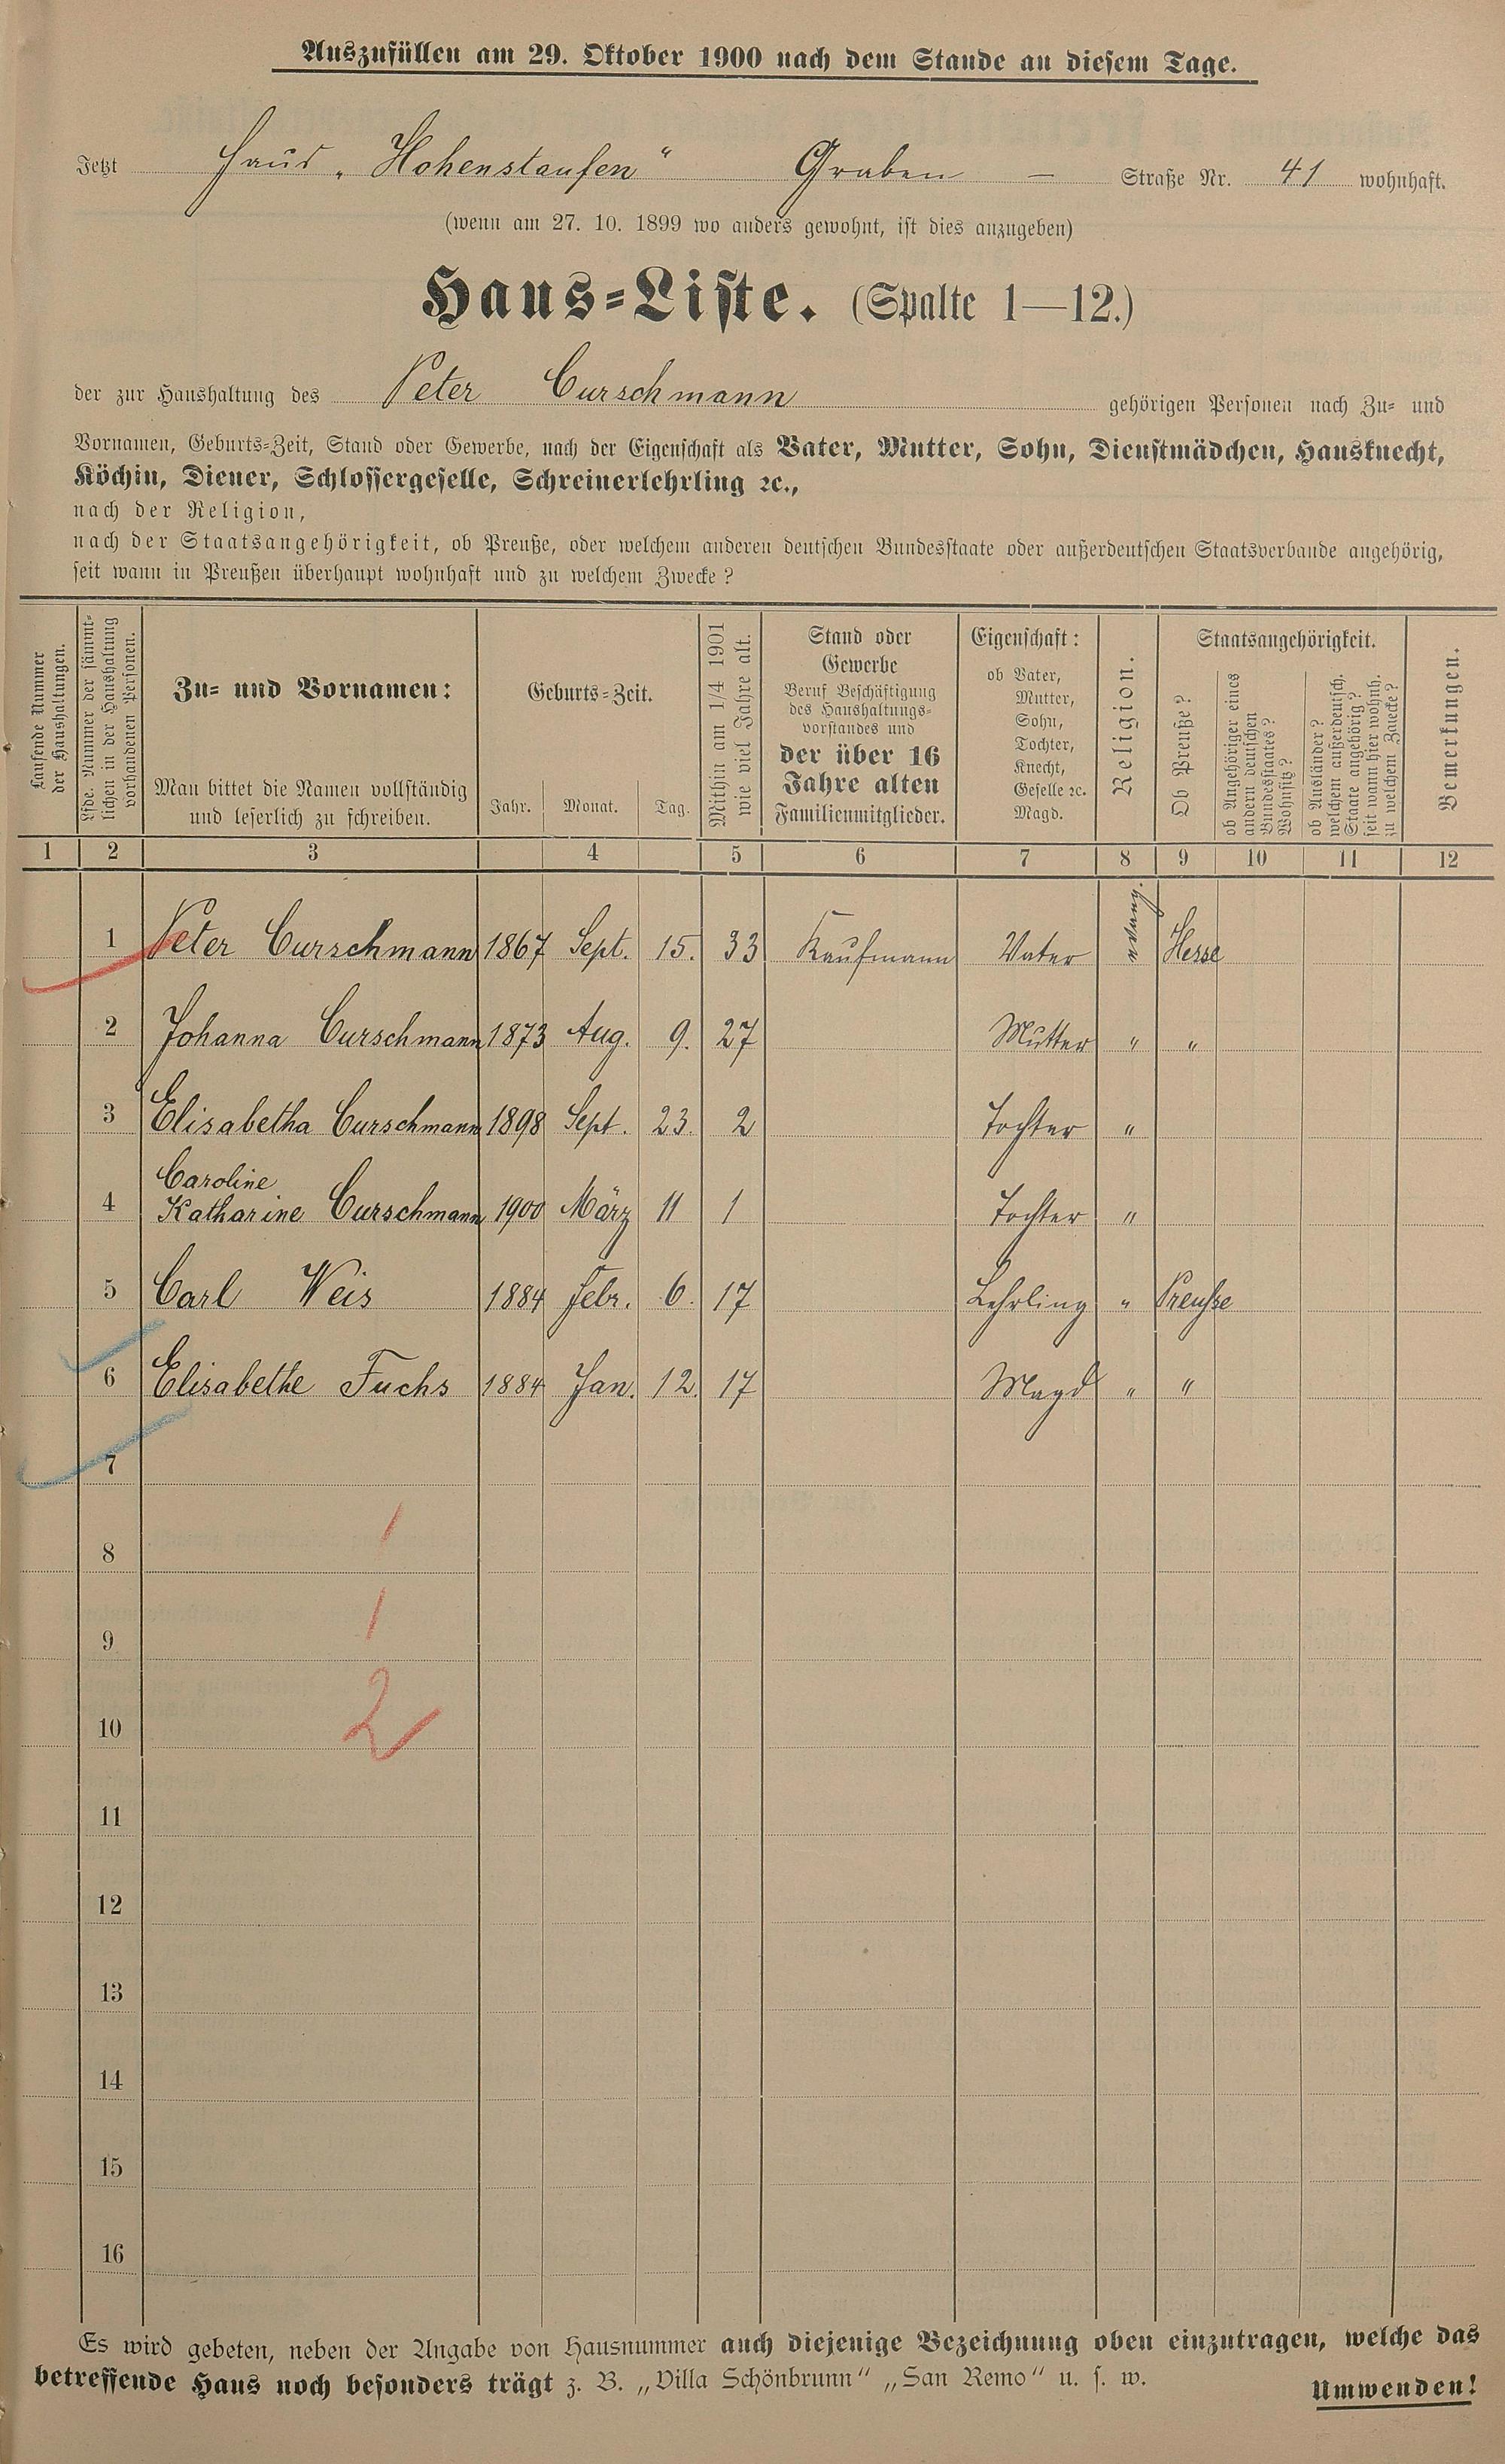 Auszufüllen am 29. Oktober 1900 nach dem Stande an diesem Tage.
Jetzt Haus „Hohenstaufen“ Graben – Straße Nr. 41 wohnhaft.
(wenn am 27. 10. 1899 wo anders gewohnt, ist dies anzugeben)
Haus-Liste. (Spalte 1—12.)
der zur Haushaltung des Peter Curschmann gehörigen Personen nach Zu- und
Vornamen, Geburts-Zeit, Stand oder Gewerbe, nach der Eigenschaft als Vater, Mutter, Sohn, Dienstmädchen, Hausknecht,
Köchin, Diener, Schlossergeselle, Schreinerlehrling ꝛc.,
nach der Religion,
nach der Staatsangehörigkeit, ob Preuße, oder welchem anderen deutschen Bundesstaate oder außerdeutschen Staatsverbande angehörig,
seit wann in Preußen überhaupt wohnhaft und zu welchem Zwecke?
Laufende Nummer
der Haushaltungen.
Lfde. Nummer der sämmt-
lichen in der Haushaltung
vorhandenen Personen.
Zu- und Vornamen:
Man bittet die Namen vollständig
und leserlich zu schreiben.
Geburts-Zeit.
Jahr. Monat. Tag.
Mithin am 1/4 1901
wie viel Jahre alt.
Stand oder
Gewerbe
Beruf Beschäftigung
des Haushaltungs-
vorstandes und
der über 16
Jahre alten
Familienmitglieder.
Eigenschaft:
ob Vater,
Mutter,
Sohn,
Tochter,
Knecht,
Geselle ꝛc.
Magd.
Religion.
Staatsangehörigkeit.
Ob Preuße?
ob Angehöriger eines
andern deutschen
Bundesstaates?
Wohnsitz?
ob Ausländer?
welchem außerdeutsch.
Staate angehörig?
seit wann hier wohnh.
zu welchem Zwecke?
Bemerkungen.
1 2 3 4 5 6 7 8 9 10 11 12
1 Peter Curschmann 1867 Sept. 15. 33 Kaufmann Vater evang. Hesse
2 Johanna Curschmann 1873 Aug. 9. 27 Mutter " "
3 Elisabetha Curschmann 1898 Sept. 23. 2 Tochter "
Caroline
4 Katharine Curschmann 1900 März 11 1 Tochter "
5 Carl Weis 1884 Febr. 6. 17 Lehrling " Preuße
6 Elisabethe Fuchs 1884 Jan. 12. 17 Magd " "
7
1
8
1
9
2
10
11
12
13
14
15
16
Es wird gebeten, neben der Angabe von Hausnummer auch diejenige Bezeichnung oben einzutragen, welche das
betreffende Haus noch besonders trägt z. B. „Villa Schönbrunn“ „San Remo“ u. s. w.
Umwenden!